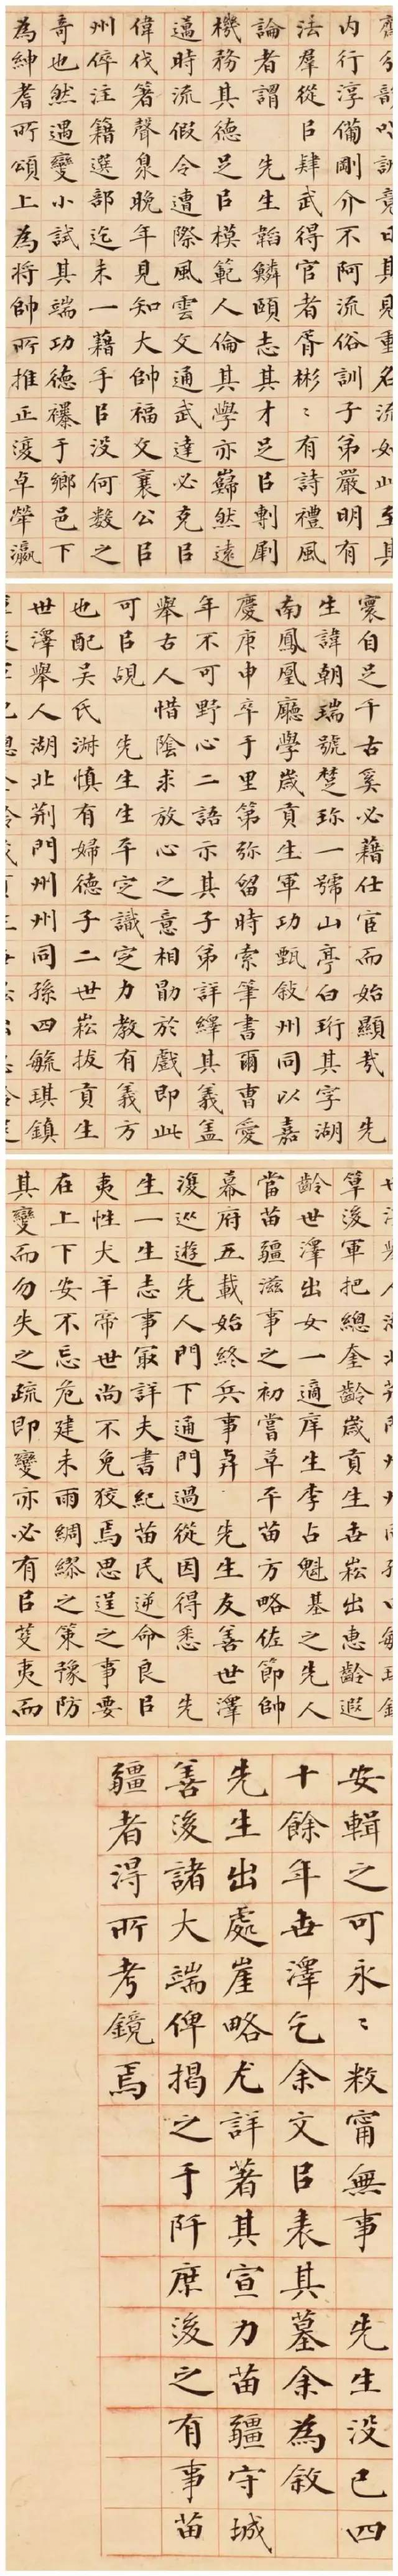 兮歌以訓竟曰其見重名流如此至其
内行淳備剛介不阿流俗訓子弟嚴明有
法羣從㠯肆武得官者胥彬〻有詩禮風
論者謂 先生韜鱗頤志其才足㠯剸劇
機務其德足㠯模範人倫其學亦巋然遠
邁時流假令遭際風雲文通武達必克㠯
偉伐箸聲臮晚年見知大帥福文襄公㠯
州倅注籍選部迄未一藉手㠯没何數之
奇也然遇變小試其端功德襮于鄉邑下
為紳耆所頌上為將帥所推正復卓犖瀛
寰自足千古奚必藉仕宦而始顯㢤 先
生諱朝瑞號楚珎一號山亭白珩其字湖
南鳳凰廳學歲貢生軍功甄敘州同以嘉
慶庚申卒于里第弥留時索筆書爾曹愛
年不可野心二語示其子弟詳繹其義盖
舉古人惜陰求放心之意相勖於戲即此
可㠯覘 先生生平定識定力教有義方
也配吴氏淋慎有婦德子二世崧拔貢生
世澤舉人湖北荆門州州同孫四毓琪鎮
筸後軍把總奎齡歲貢生世崧出惠齡遐
齡世澤出女一適庠生李占魁基之先人
當苗疆滋事之初嘗草平苗方略佐節帥
幕府五載始終兵事弆 先生友善世澤
復巡遊先人門下通門過從因得悉 先
生一生志事冣詳夫書紀苗民逆命良㠯
夷性犬羊帝世尚不免狡焉思逞之事要
在上下安不忘危建未雨綢繆之策豫防
其變而勿失之疏即變亦必有㠯芟夷而
安輯之可永〻敉甯無事 先生没已四
十餘年世澤乞余文㠯表其墓余為敘
先生出處崖略尤詳著其宣力苗疆守城
善後諸大端俾揭之于阡庶後之有事苗
疆者得所考鏡焉